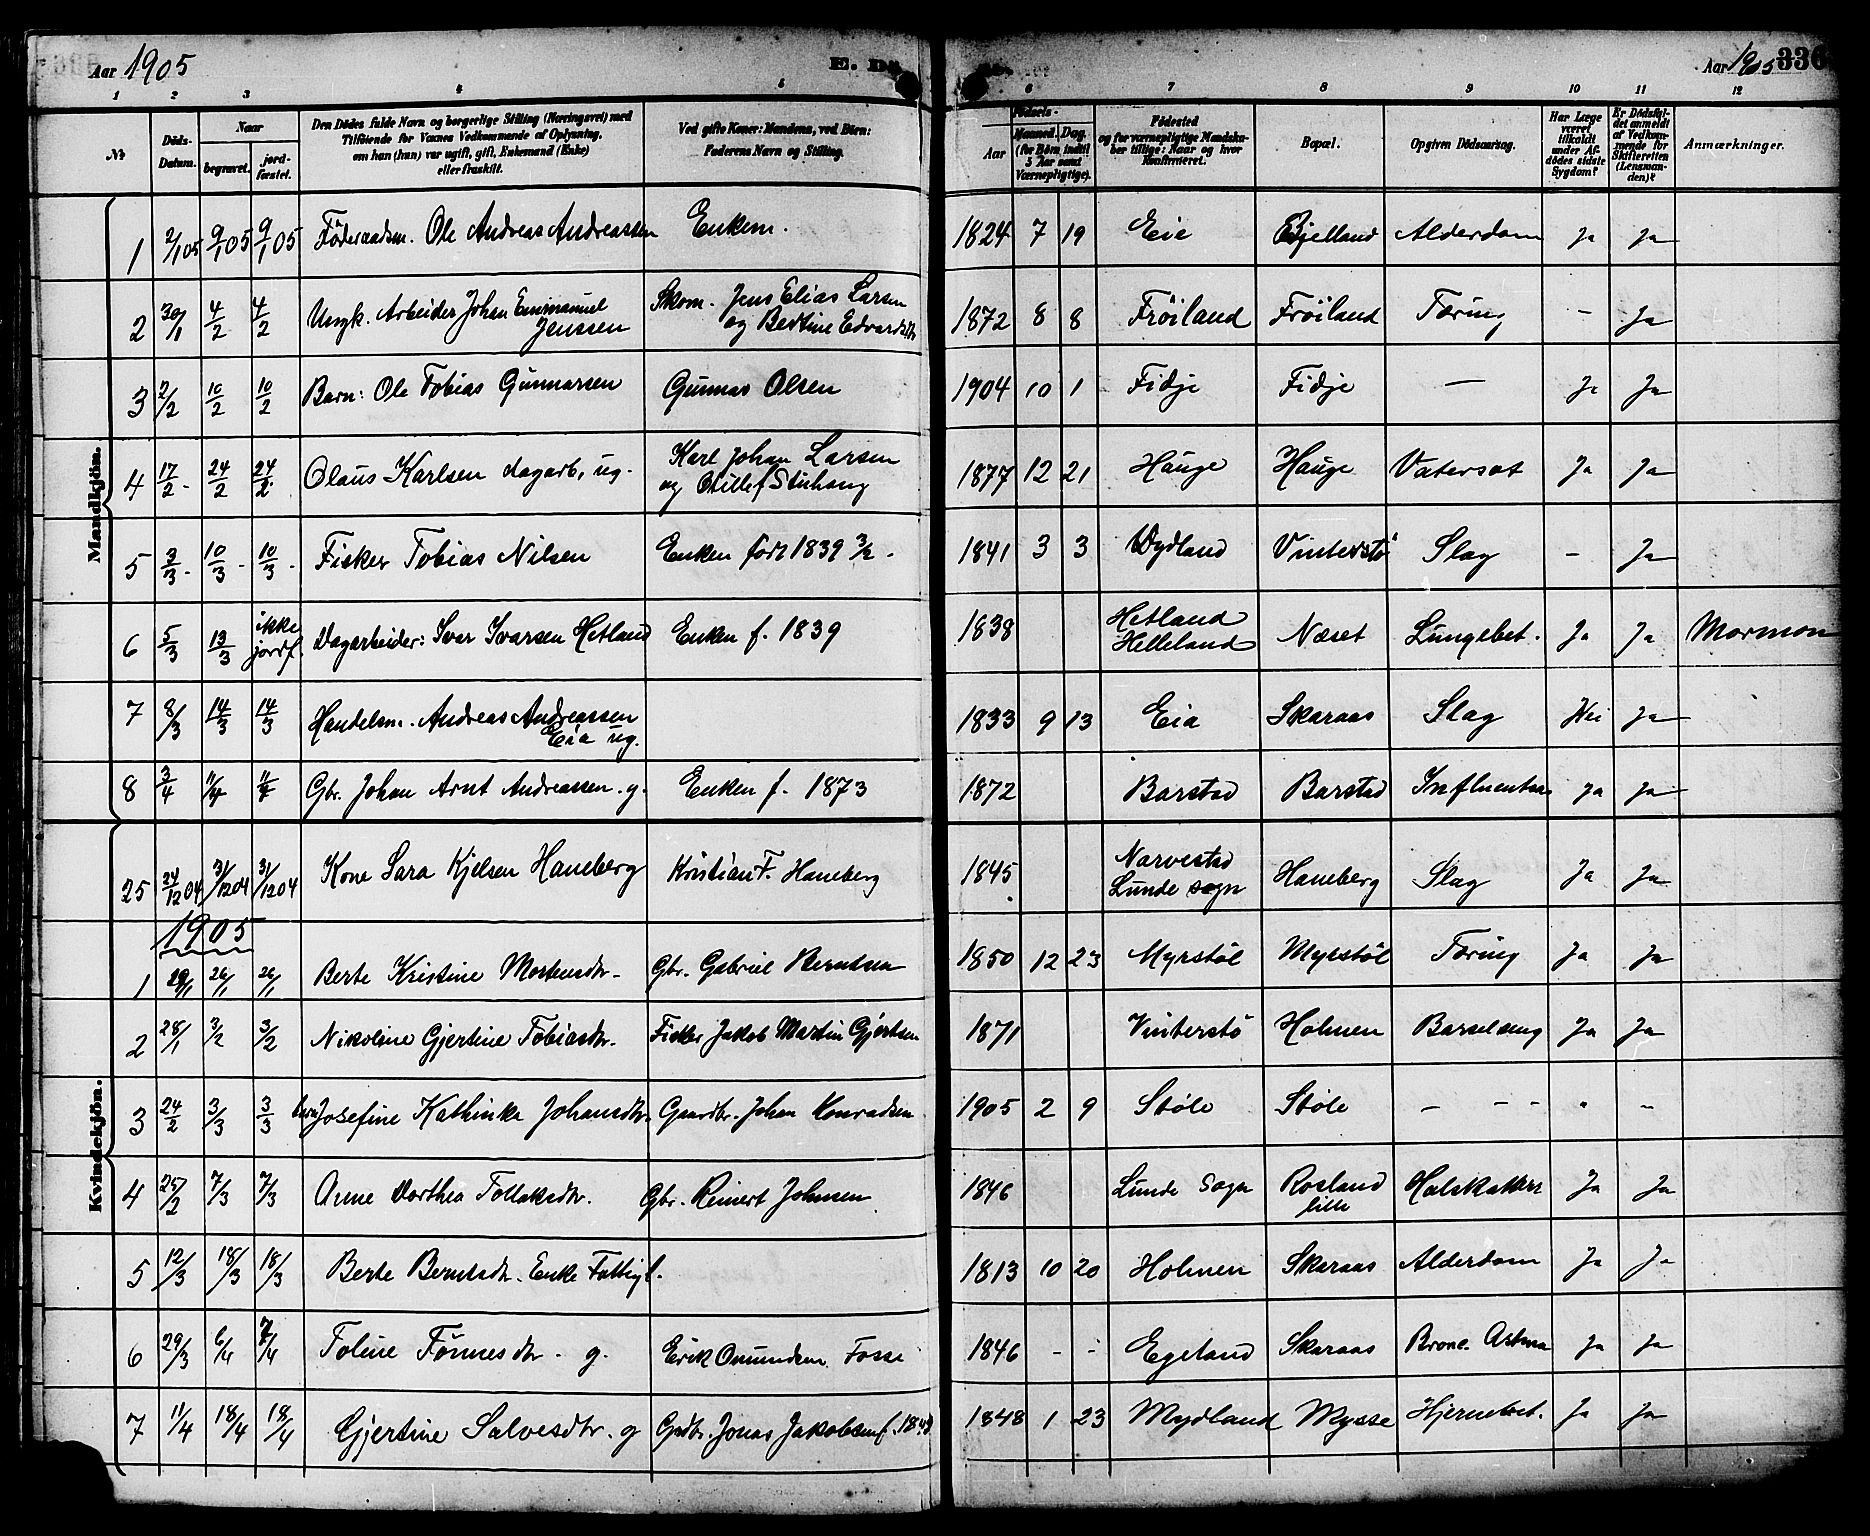 Aar 1905 E. Dø
Aar 1905 336
1 2 3 4 5 6 7 8 9 10 11 12
№ Døds-Datum. Naar begravet. jordfæstet. Den Dødes fulde Navn og borgerlige Stilling (Næringsvei) med Tilføiende for Voxnes Vedkommende af Oplysning, om han (hun) var ugift, gift, Enkemand (Enke) eller fraskilt. Ved gifte Koner: Mandens, ved Børn: Faderens Navn og Stilling. Fødsels- Aar Maaned. Dag. (for Børn indtil 5 Aar samt Værnepligtige). Fødested og for værnepligtige Mandskaber tillige: Naar og hvor Konfirmeret. Bopæl. Opgiven Dødsaarsag. Har Læge været tilkaldt under Afdødes sidste Sygdom? Er Dødsfaldet anmeldt af Vedkommende for Skifteretten (Lensmanden)? Anmærkninger.
Mandkjön.
1 2/1 05 9/1 05 9/1 05 Føderaadsm. Ole Andreas Andreassen Enkem. 1824 7 19 Eie Bjelland Alderdom Ja Ja
2 30/1 4/2 4/2 Ungk. Arbeider Johan Emmanuel Jenssen Skom. Jens Elias Larsen og Bertine Edvardsdtr 1872 8 8 Frøiland Frøiland Tæring – Ja
3 2/2 10/2 10/2 Barn: Ole Tobias Gunnarsen Gunnar Olsen 1904 10 1 Fidje Fidje — Ja Ja
4 17/2 - 24/2 24/2 Olaus Karlsen dagarb, ug. Karl Johan Larsen og 1877 12 21 Hauge Hauge Vatersot Ja Ja
5 3/3 - 10/3 - 10/3 - Fisker Tobias Nilsen Enken født 1839 3/2 - 1841 3 3 Dydland Vinterstø Slag – Ja
6 5/3 13/3 ikke jordf. Dagarbeider: Ivar Ivarsen Hetland Enken f. 1839 1838 Hetland Helleland Næset Lungebet. Ja Ja Mormon
7 8/3 14/3 14/3 Handelsm. Andreas Andreassen Eia ug. 1833 9 13 Eia Skaraas Slag Nei Ja
8 3/4 11/4 11/4 Gbr. Johan Arnt Andreassen. g. Enken f. 1873 1872 Barstad Barstad Influentsa Ja Ja
Kvindekjön.
25 24/12 04 31/12 04 31/12 04 Kone Sara Kjelsen Haneberg Kristian F. Haneberg 1845 Narvestad Lunde sogn Haneberg Slag Ja Ja
1905
1 19/1 26/1 26/1 Berte Kristine Mortensdtr. Gbr. Gabriel Berntsen 1850 12 23 Myrstøl Myrstøl Tæring Ja Ja
2 28/1 3/2 3/2 Nikoline Gjertine Tobiasdtr. Fisker Jakob Martin Gjertsen 1871 Vinterstø Holmen Barselseng Ja Ja
3 24/2 3/3 3/3 barn Josefine Kathinka Johansdtr. Gaardbr. Johan Konradsen 1905 2 9 Støle Støle – – – –
4 25/2 7/3 7/3 Anne Dorthea Tollaksdtr. Gbr. Reinert Johnsen 1846 Lunde Sogn Rosland lille Ja Ja
5 12/3 18/3 18/3 Berte Berntsdtr. Enke Fattigl. 1813 10 20 Holmen Skaraas Alderdom Ja Ja
6 29/3 6/4 7/4 Toline Tønnesdtr - g. Erik Omundsen Fosse 1846 - - Egeland Skaraas Bronc. Astma Ja Ja
7 11/4 18/4 18/4 Gjertine Salvesdtr. g Grdbr. Jonas Jakobsen f. 1848 1 23 Mydland Mysse Hjernebet. Ja Ja